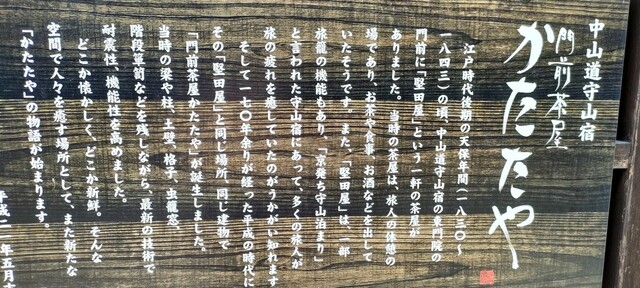 中山道守山宿
門前茶屋
かたたや
江戸時代後期の天保年間(一八三〇〜
一八四三)の頃、中山道守山宿の東門院の
門前に「堅田屋」という一軒の茶屋が
ありました。当時の茶屋は、旅人の休憩の
場であり、お茶や食事、お酒などを出して
いたそうです。また、「堅田屋」は、一部
旅籠の機能もあり、「京発ち守山泊まり」
と言われた守山宿にあって、多くの旅人が
旅の疲れを癒していたのがうかがい知れます
そして一七〇年余りが経った平成の時代に
その「堅田屋」と同じ場所、同じ建物で
「門前茶屋かたたや」が誕生しました。
当時の梁や柱、土壁、格子、虫籠窓、
階段箪笥などを残しながら、最新の技術で
耐震性、機能性を高めました。
どこか懐かしく、どこか新鮮。そんな
空間で人々を癒す場所として、また新たな
「かたたや」の物語が始まります。
平成二 年五月